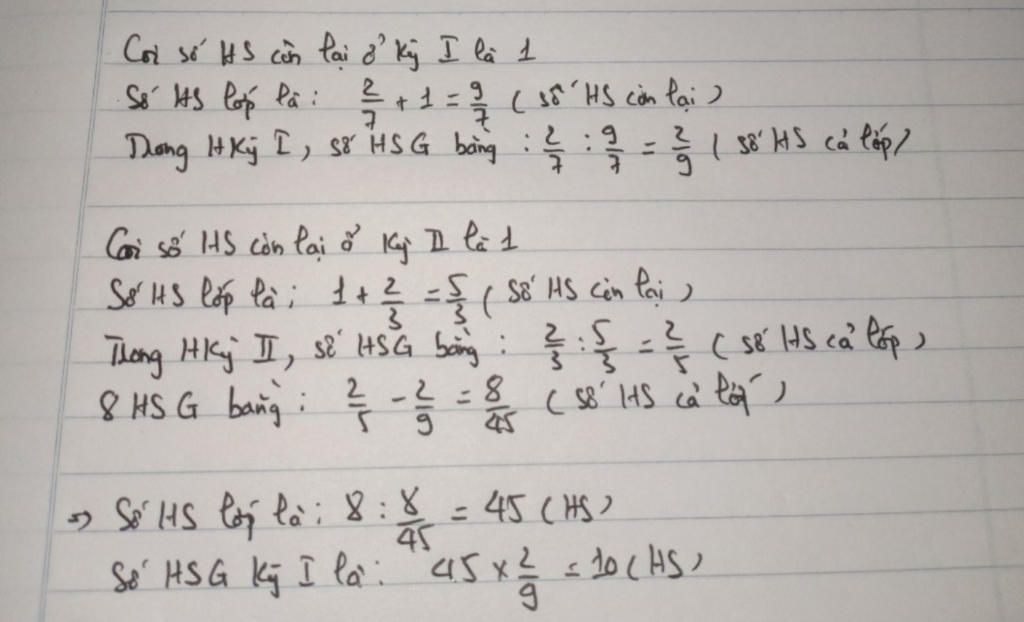 Coi số HS còn lại ở Kỳ I là 1
Số HS lớp là: 2/7 + 1 = 9/7 (số HS còn lại)
Trong HKỳ I, số HSG bằng: 2/7 : 9/7 = 2/9 (số HS cả lớp)
Coi số HS còn lại ở Kỳ II là 1
Số HS lớp là: 1 + 2/3 = 5/3 (số HS còn lại)
Trong HKỳ II, số HSG bằng: 2/3 : 5/3 = 2/5 (số HS cả lớp)
8 HSG bằng: 2/5 - 2/9 = 8/45 (số HS cả lớp)
=> Số HS lớp là: 8 : 8/45 = 45 (HS)
Số HSG Kỳ I là: 45 x 2/9 = 10 (HS)